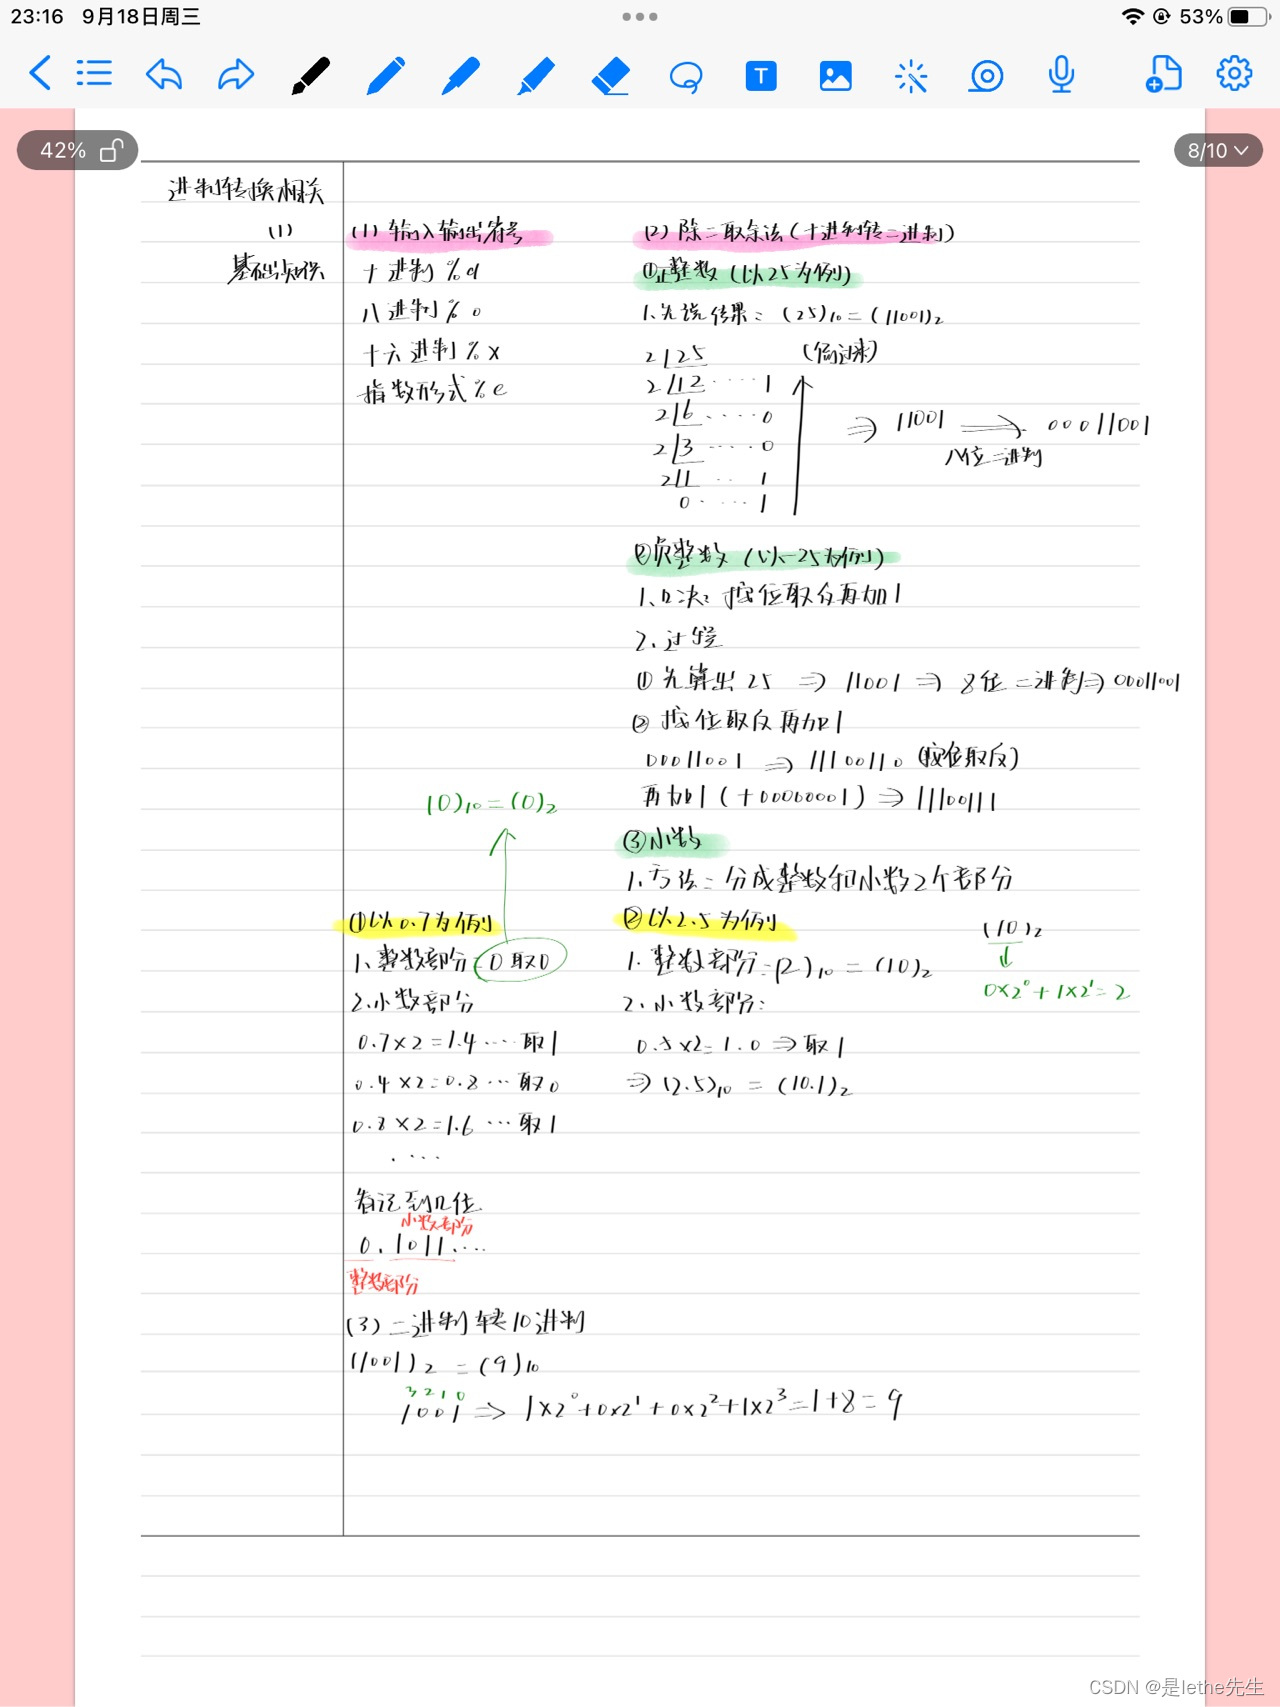 23:16 9月18日周三
53%
42%
8/10
进制转换相关
(1)
基础知识
(1) 输入输出符号
十进制 %d
八进制 %o
十六进制 %x
指数形式 %e
(2) 除二取余法(十进制转二进制)
①正整数(以25为例)
1、先说结果: (25)₁₀=(11001)₂
2 25 (倒过来)
2 12 ····· 1
2 6 ····· 0
2 3 ····· 0
2 1 ·· 1
0 ····· 1
⇒ 11001 ⇒ 00011001
八位二进制
②负整数(以-25为例)
1、口决: 按位取反再加1
2、过程
① 先算出25 ⇒ 11001 ⇒ 8位二进制⇒00011001
② 按位取反再加1
00011001 ⇒ 11100110 (按位取反)
再加1(+00000001) ⇒ 11100111
③小数
1、方法: 分成整数和小数2个部分
(0)₁₀=(0)₂
①以0.7为例
1、整数部分: 0取0
2.小数部分
0.7×2=1.4 ··· 取1
0.4×2=0.8 ··· 取0
0.8×2=1.6 ··· 取1
·····
看记到几位
小数部分
0.1011····
整数部分
②以2.5为例
1. 整数部分:(2)₁₀=(10)₂
2. 小数部分:
0.5×2=1.0 ⇒取1
⇒ (2.5)₁₀ = (10.1)₂
(10)₂
↓
0×2⁰+1×2¹=2
(3) 二进制转10进制
(1001)₂ = (9)₁₀
3 2 1 0
1001 ⇒ 1×2⁰+0×2¹+0×2²+1×2³=1+8=9
CSDN @是lethe先生